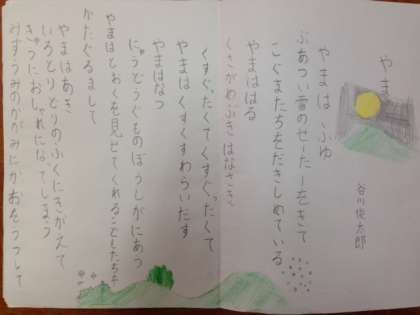 やま
谷川俊太郎
やまは ふゆ
ぶあつい雪のせーたーをきて
こぐまたちをだきしめている
やまははる
くさがめぶきはなさき
くすぐったくてくすぐったくて
やまはくすくすわらいだす
やまはなつ
にゅうどうぐものぼうしがにあう
やまはとおくを見せてくれるこどもたちを
かたぐるまして
やまはあき
いろとりどりのふくにきがえて
きゅうにおしゃれになってしまう
みずうみのかがみにかおをうつして